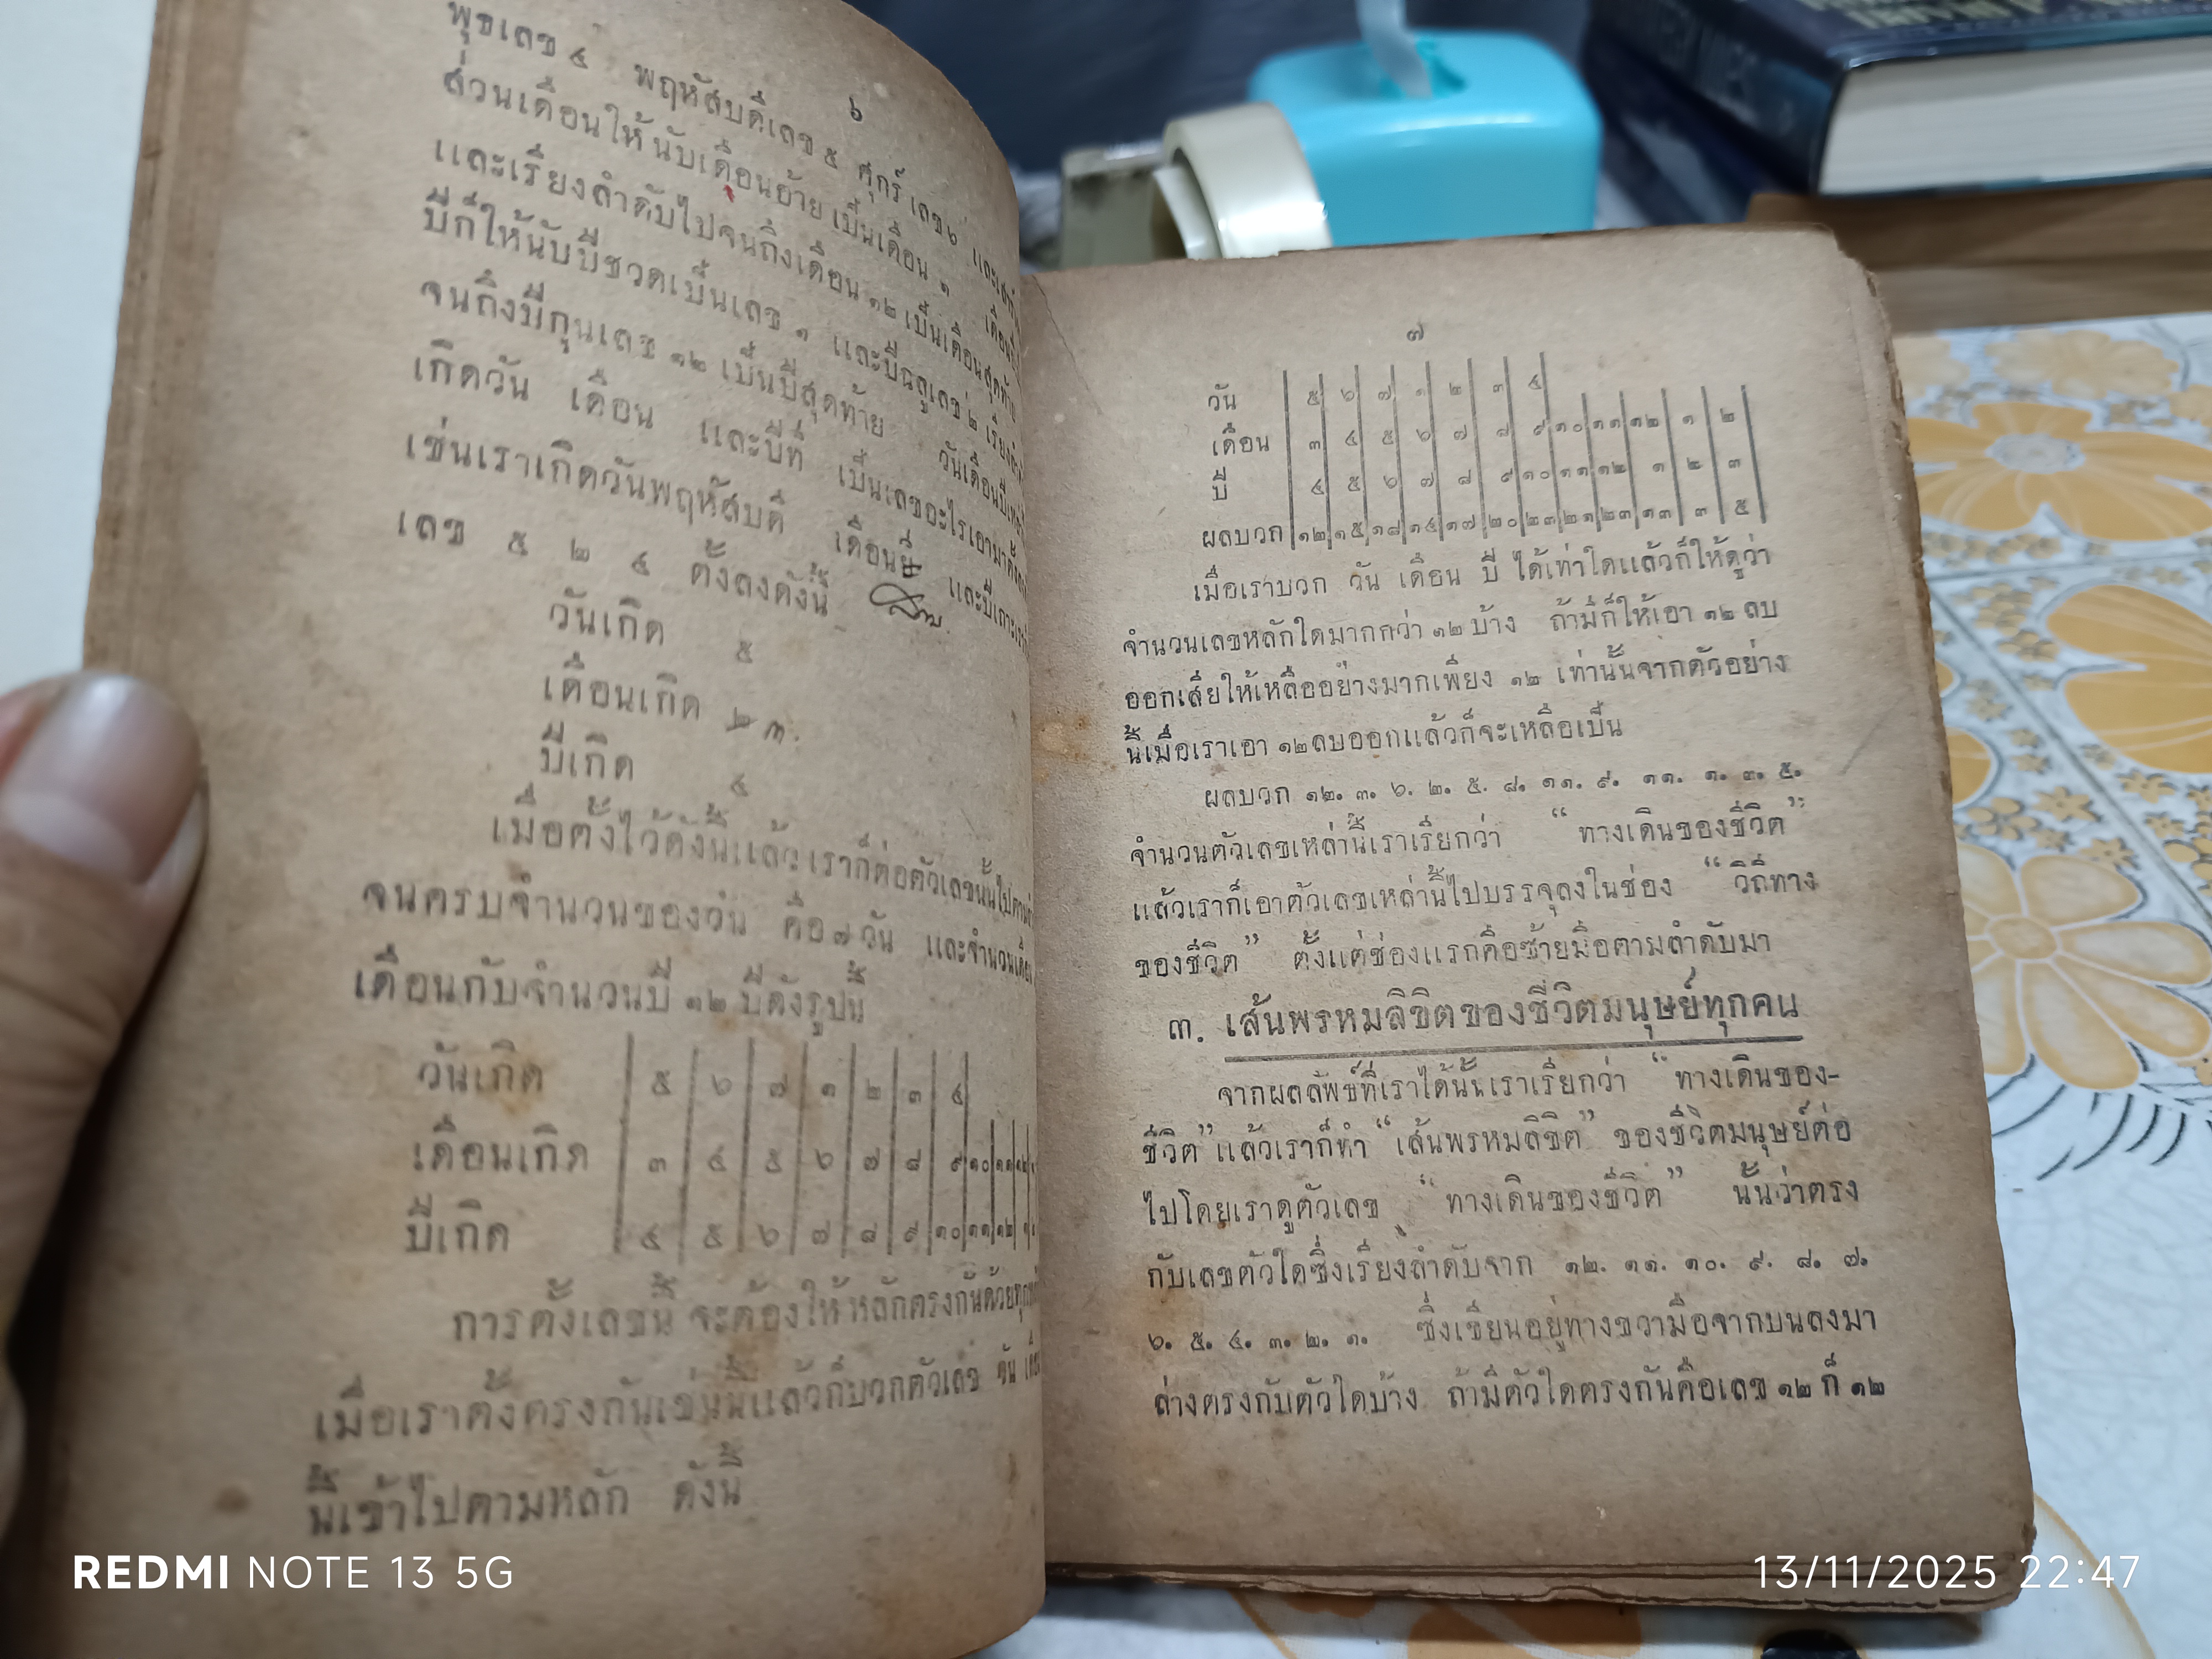 ๖
พุธเลข ๔ พฤหัสบดีเลข ๕ ศุกร์ เลข ๖
ส่วนเดือนให้นับเดือนอ้าย เป็นเดือน ๑
และเรียงลำดับไปจนถึงเดือน ๑๒ เป็นเดือนสุดท้าย
ปีก็ให้นับปีชวดเป็นเลข ๑ และปีฉลูเลข ๒
จนถึงปีกุนเลข ๑๒ เป็นปีสุดท้าย
เกิดวัน เดือน และปีที่ เป็นเลขอะไรเอามา
เช่นเราเกิดวันพฤหัสบดี เดือนยี่
เลข ๕ ๒ ๔ ตั้งลงดังนี้ สาม
วันเกิด ๕
เดือนเกิด ๒ ๓.
ปีเกิด ๔
เมื่อตั้งไว้ดังนี้แล้วเราก็ต่อตัวเลขนั้นไป
จนครบจำนวนของวัน คือ ๗ วัน และจำนวน
เดือนกับจำนวนปี ๑๒ ปีดังรูปนี้
วันเกิด ๕ ๖ ๗ ๑ ๒ ๓ ๔
เดือนเกิด ๓ ๔ ๕ ๖ ๗ ๘ ๙ ๑๐ ๑๑ ๑๒
ปีเกิด ๔ ๕ ๖ ๗ ๘ ๙ ๑๐ ๑๑ ๑๒ ๑
การตั้งเลขนี้ จะต้องให้หลักตรงกันด้วย
เมื่อเราตั้งตรงกันเช่นนี้แล้วก็บวกตัวเลข วัน
นี้เข้าไปตามหลัก ดังนี้
๗
วัน ๕ ๖ ๗ ๑ ๒ ๓ ๔
เดือน ๓ ๔ ๕ ๖ ๗ ๘ ๙ ๑๐ ๑๑ ๑๒ ๑ ๒
ปี ๔ ๕ ๖ ๗ ๘ ๙ ๑๐ ๑๑ ๑๒ ๑ ๒ ๓
ผลบวก ๑๒ ๑๕ ๑๘ ๑๔ ๑๗ ๒๐ ๒๓ ๒๑ ๒๓ ๑๓ ๓ ๕
เมื่อเราบวก วัน เดือน ปี ได้เท่าใดแล้วก็ให้ดูว่า
จำนวนเลขหลักใดมากกว่า ๑๒ บ้าง ถ้ามีก็ให้เอา ๑๒ ลบ
ออกเสียให้เหลืออย่างมากเพียง ๑๒ เท่านั้นจากตัวอย่าง
นี้เมื่อเราเอา ๑๒ ลบออกแล้วก็จะเหลือเป็น
ผลบวก ๑๒. ๓. ๖. ๒. ๕. ๘. ๑๑. ๙. ๑๑. ๑. ๓. ๕.
จำนวนตัวเลขเหล่านี้เราเรียกว่า “ทางเดินของชีวิต”
แล้วเราก็เอาตัวเลขเหล่านี้ไปบรรจุลงในช่อง “วิถีทาง
ของชีวิต” ตั้งแต่ช่องแรกคือซ้ายมือตามลำดับมา
๓. เส้นพรหมลิขิตของชีวิตมนุษย์ทุกคน
จากผลลัพธ์ที่เราได้นั้นเราเรียกว่า “ทางเดินของ-
ชีวิต” แล้วเราก็ทำ “เส้นพรหมลิขิต” ของชีวิตมนุษย์ต่อ
ไปโดยเราดูตัวเลข “ทางเดินของชีวิต” นั้นว่าตรง
กับเลขตัวใดซึ่งเรียงลำดับจาก ๑๒. ๑๑. ๑๐. ๙. ๘. ๗.
๖. ๕. ๔. ๓. ๒. ๑. ซึ่งเขียนอยู่ทางขวามือจากบนลงมา
ล่างตรงกับตัวใดบ้าง ถ้ามีตัวใดตรงกันคือเลข ๑๒ ก็ ๑๒
REDMI NOTE 13 5G
13/11/2025 22:47